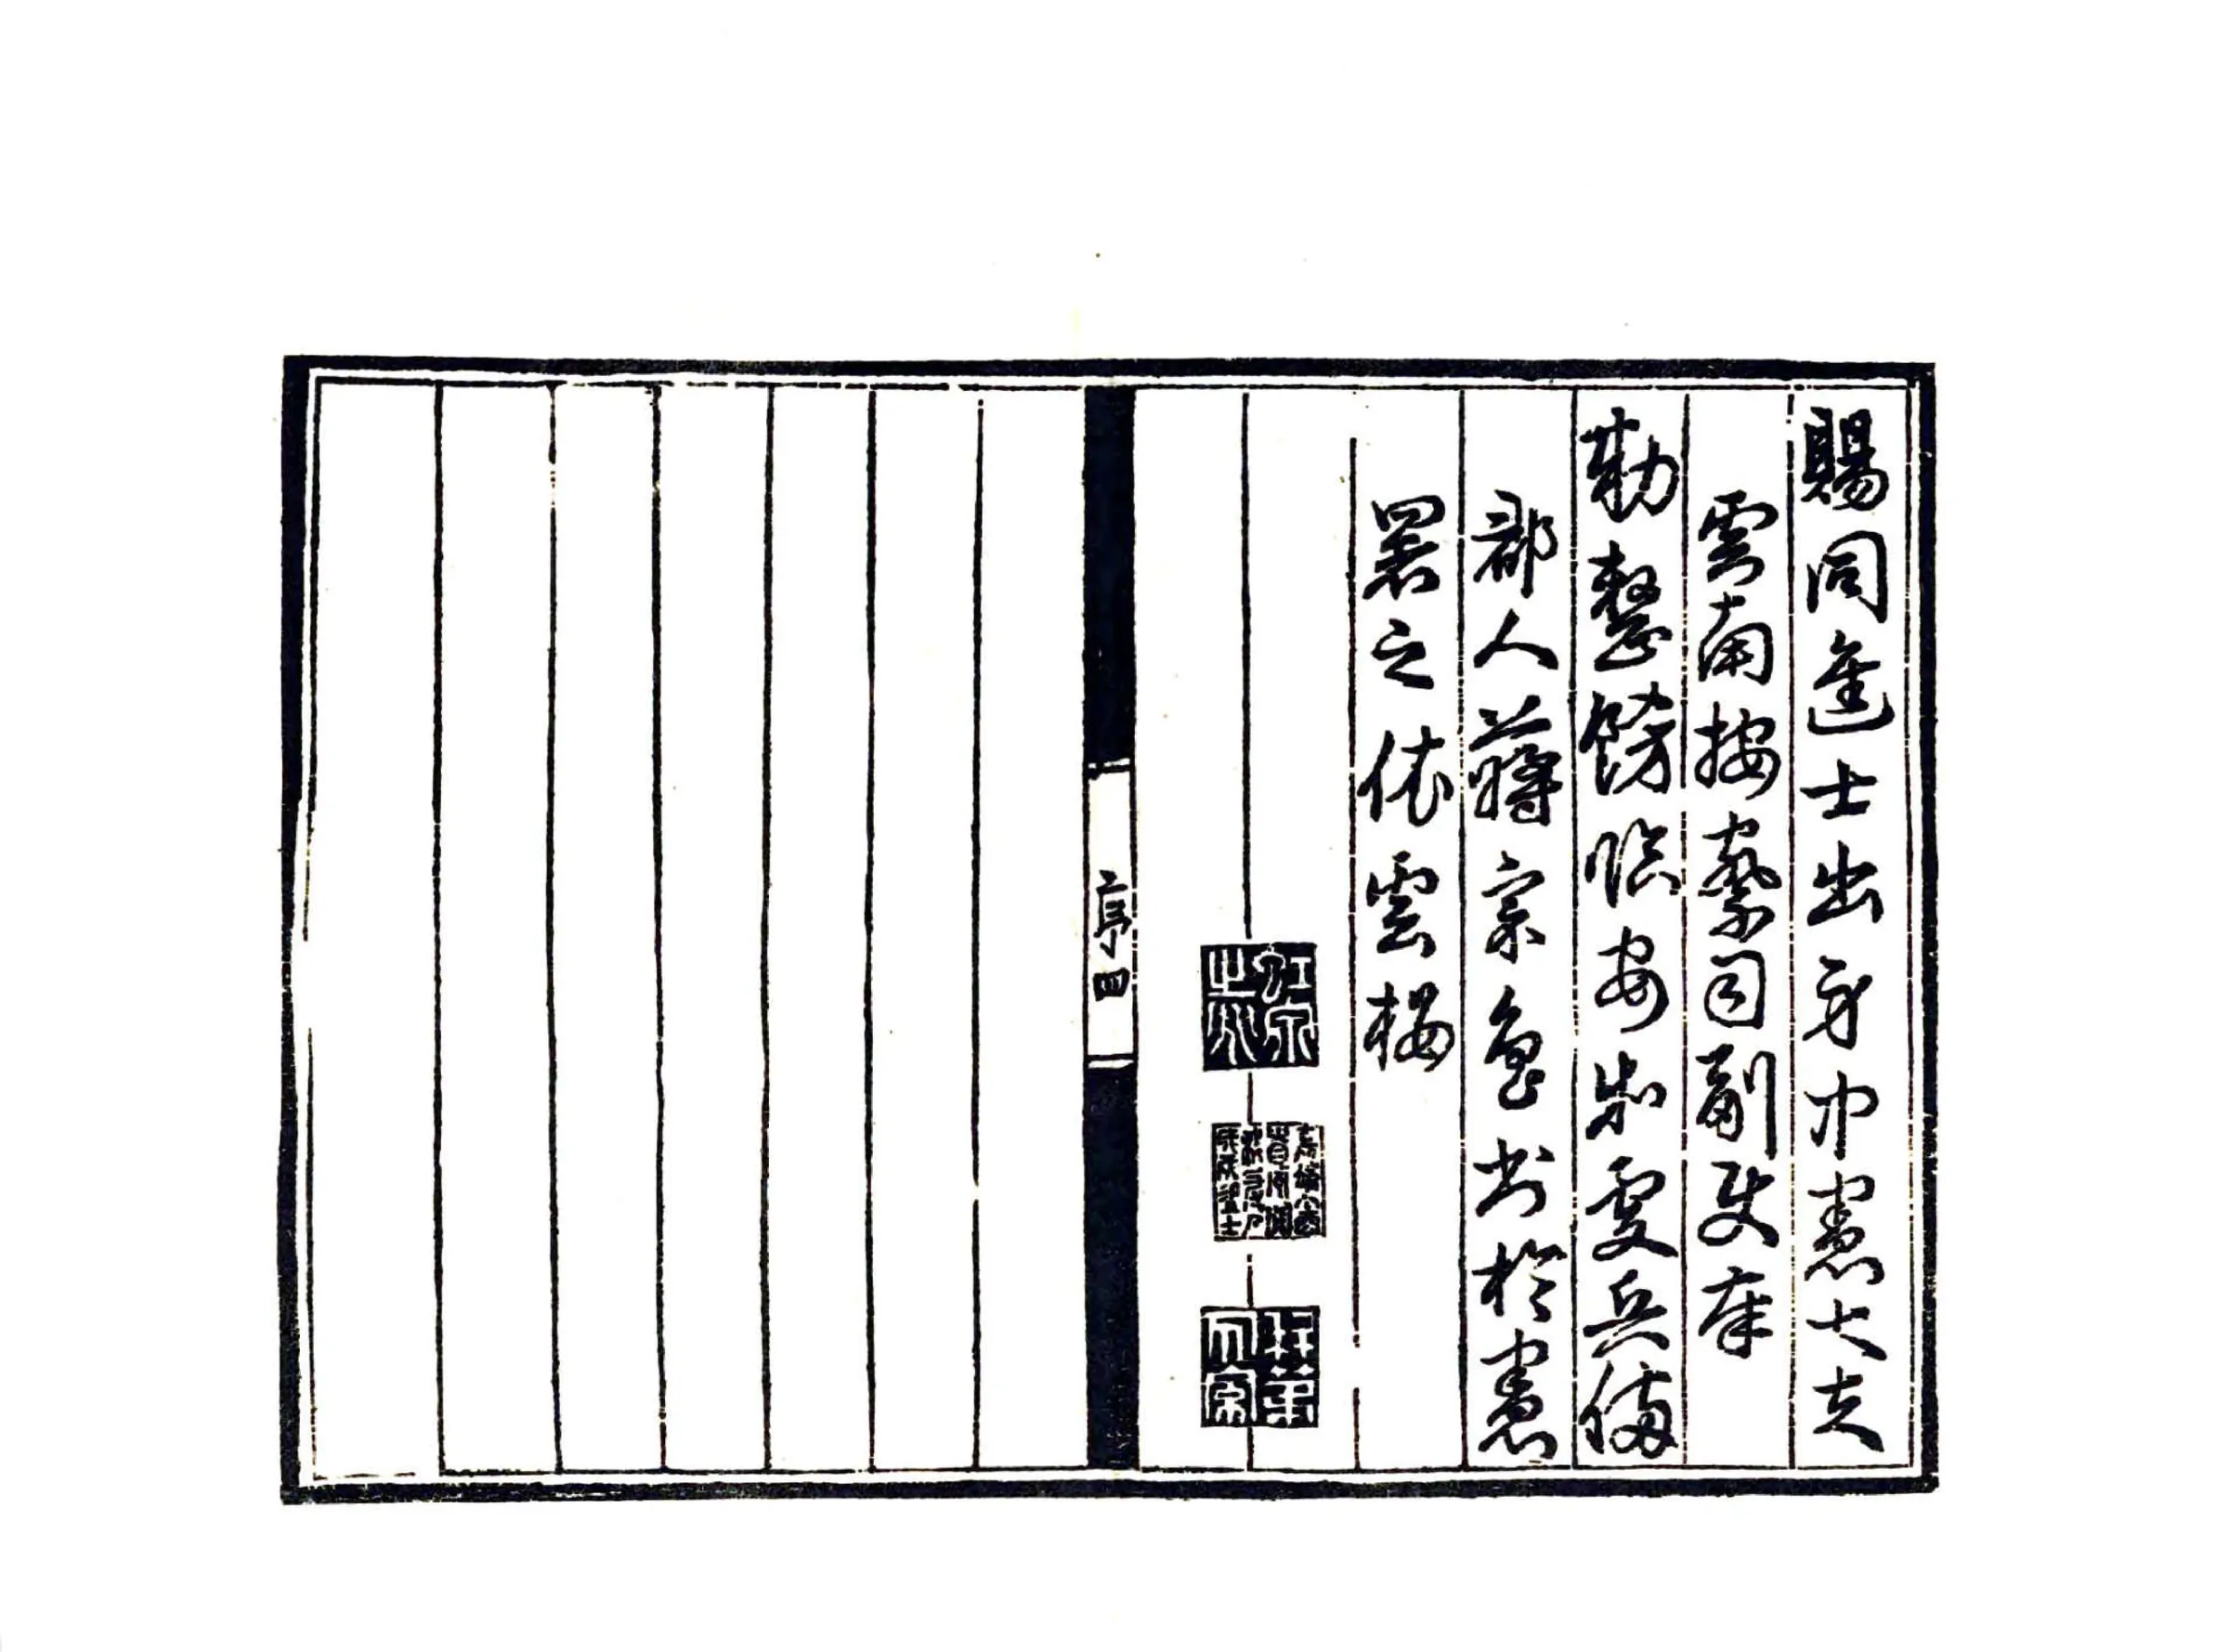 賜同進士出身中憲大夫
雲南按察司副使奉
勅整飭臨安等處兵備
郡人蔣宗魯書於憲
署之依雲樓
序 四